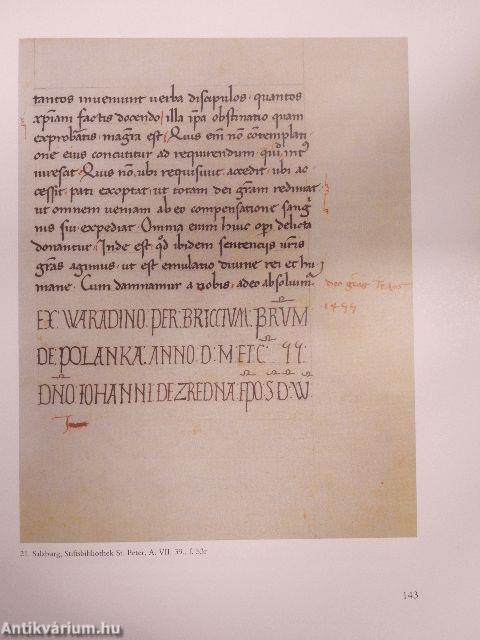 tantos inveniunt verba discipulos, quantos
xpiani factis docendo, illa ipa obstinatio quam
exprobatis magra est, Quis eni non cotemplati
one eius concutitur ad requirendum quid int'
in re sit. Quis non, ubi requisivit, accedit, ubi ac
cessit pati exoptat, ut totam dei gram redimat
ut omnem veniam ab eo compensatione sang
nis sui expediat. Omnia enim huic operi delicta
donantur. Inde est, qd ibidem sentencijs vris
gras agimus, ut est emulatio divine rei et hu
mane. Cum damnamur a vobis, a deo absolvimr.
deo gras
1455
EX. WARADINO. PER. BRICCIUM. BRUM
DE. POLANKA. ANNO. D. M ET. C. 99.
DNO IOHANNI DE ZREDNA. EPO. S. D. W.
21. Salzburg, Stiftsbibliothek St. Peter, A. VII. 39., f. 53r
143
Antikvárium.hu